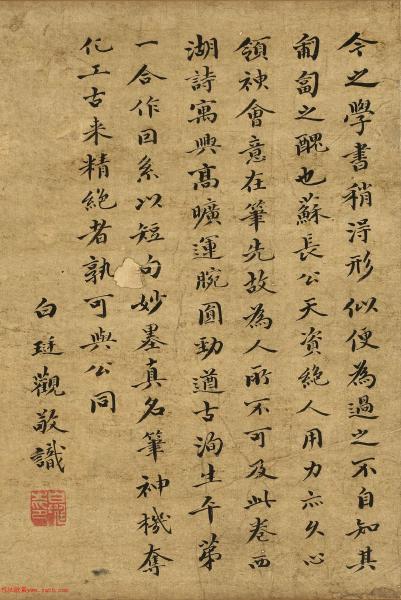 今之學書稍得形似便為過之不自知其
匍匐之醜也蘇長公天資絕人用力亦久心
領神會意在筆先故為人所不可及此卷西
湖詩寓興高曠運腕圓勁遒古洵生平第
一合作因系以短句妙墨真名筆神機奪
化工古来精絕者孰可與公同
白珽觀敬識